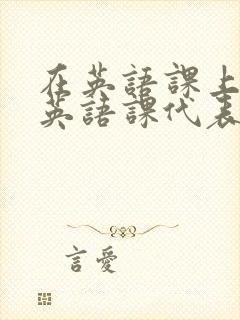 在英語課上
英語課代表
言愛